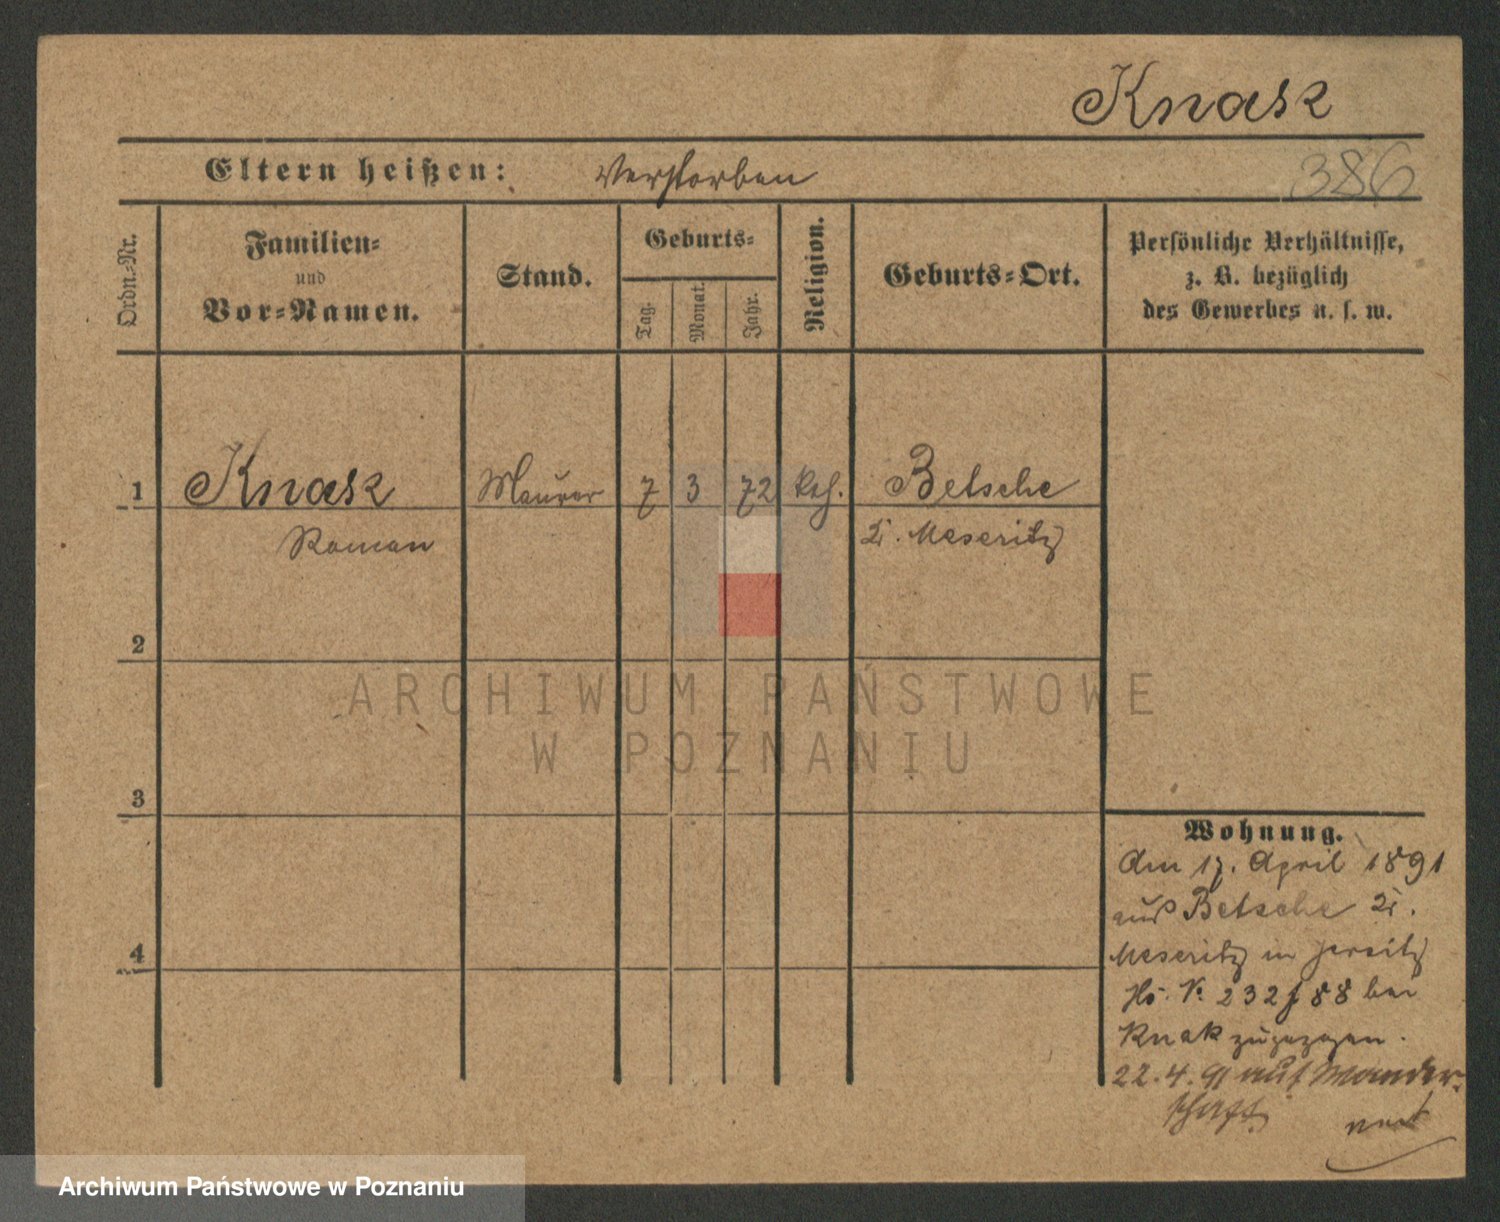 Knask
Eltern heißen: Verstorben 386
Ordn.-Nr.
Familien-
und
Vor-Namen.
Stand.
Geburts-
Tag.
Monat.
Jahr.
Religion.
Geburts-Ort.
Persönliche Verhältnisse,
z. B. bezüglich
des Gewerbes u. s. w.
1 Knask Maurer 7 3 72 Betsche
Roman Meseritz
2
ARCHIWUM PAŃSTWOWE
W POZNANIU
3
Wohnung.
Am 17. April 1891
aus Betsche
Meseritz in Jersitz
Hs. N. 232/88 bei
Knak zugezogen.
22.4.91 auf Wander-
schaft
4
Archiwum Państwowe w Poznaniu